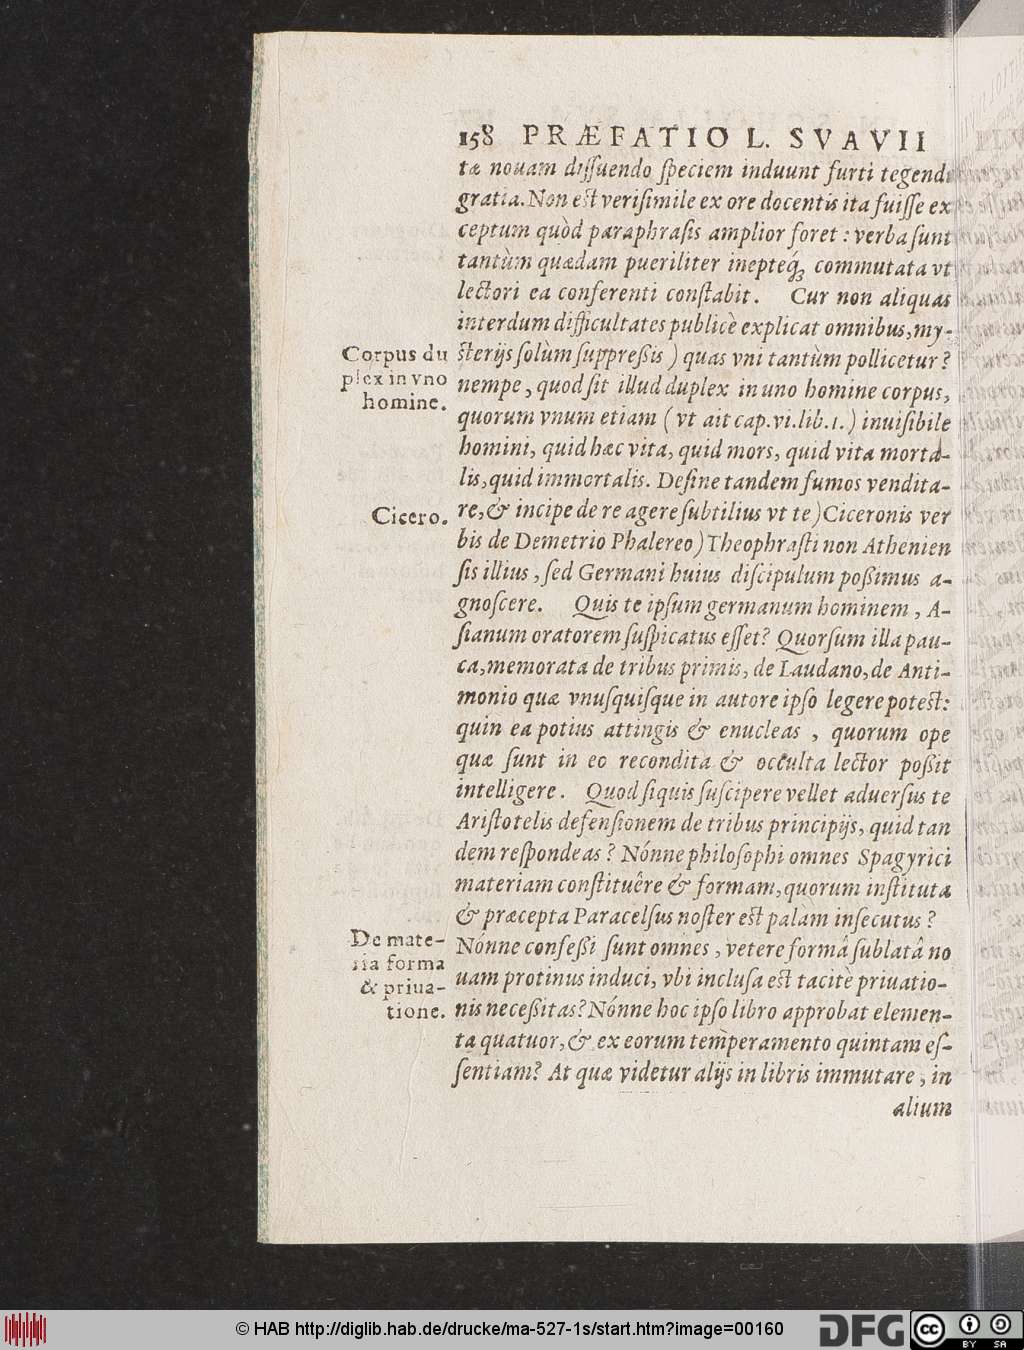 158 PRÆFATIO L. SVAVII
tæ nouam dissuendo speciem induunt furti tegendi
gratia. Non est verisimile ex ore docentis ita fuisse ex
ceptum quòd paraphrasis amplior foret : verba sunt
tantùm quædam pueriliter ineptéq; commutata vt
lectori ea conferenti constabit. Cur non aliquas
interdum difficultates publicè explicat omnibus, my-
Corpus du
plex in vno
homine.
sterijs solùm suppreßis ) quas vni tantùm pollicetur ?
nempe , quod sit illud duplex in uno homine corpus,
quorum vnum etiam ( vt ait cap. vi. lib. 1. ) inuisibile
homini, quid hæc vita, quid mors, quid vita morta-
lis, quid immortalis. Desine tandem fumos vendita-
Cicero.
re, & incipe de re agere subtilius vt te ) Ciceronis ver
bis de Demetrio Phalereo ) Theophrasti non Athenien
sis illius , sed Germani huius discipulum poßimus a-
gnoscere. Quis te ipsum germanum hominem , A-
sianum oratorem suspicatus esset? Quorsum illa pau-
ca, memorata de tribus primis, de Laudano, de Anti-
monio quæ vnusquisque in autore ipso legere potest:
quin ea potius attingis & enucleas , quorum ope
quæ sunt in eo recondita & occulta lector poßit
intelligere. Quod siquis suscipere vellet aduersus te
Aristotelis defensionem de tribus principijs, quid tan
dem respondeas ? Nónne philosophi omnes Spagyrici
materiam constituêre & formam, quorum instituta
& præcepta Paracelsus noster est palàm insecutus ?
De mate-
ria forma
& priua-
tione.
Nónne confeßi sunt omnes , vetere formâ sublatâ no
uam protinus induci, vbi inclusa est tacitè priuatio-
nis neceßitas? Nónne hoc ipso libro approbat elemen-
ta quatuor, & ex eorum temperamento quintam es-
sentiam? At quæ videtur alijs in libris immutare , in
alium
© HAB http://diglib.hab.de/drucke/ma-527-1s/start.htm?image=00160
DFG
cc BY SA